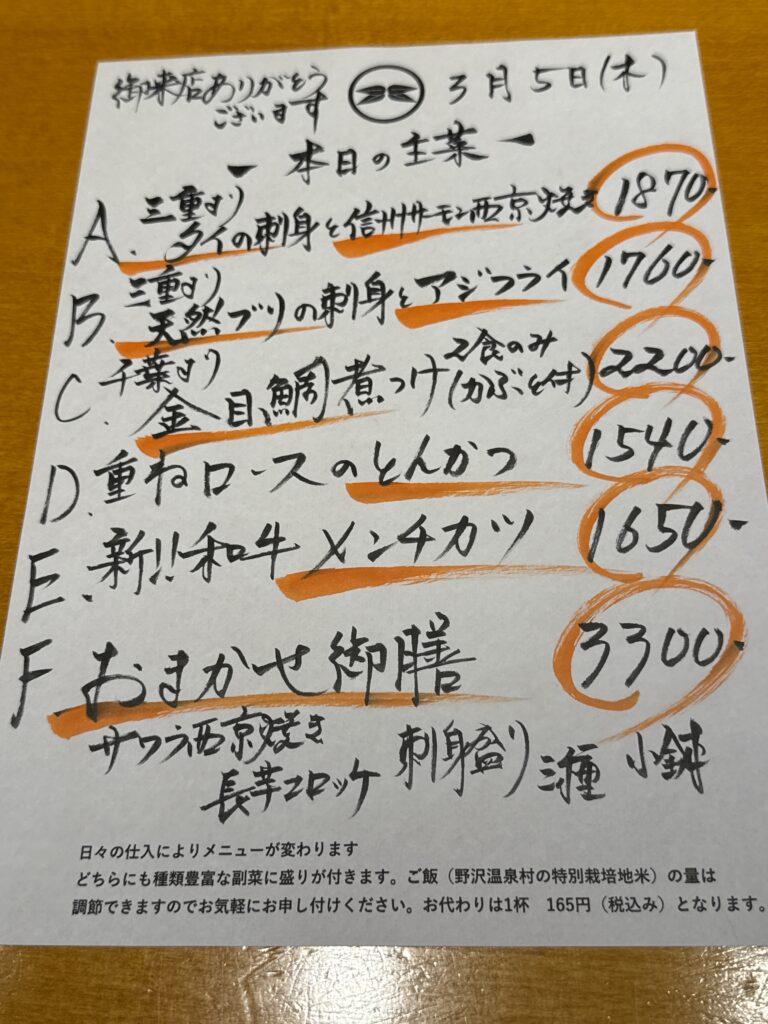 御来店ありがとう
ございます
3月5日(木)
本日の主菜
A. 三重より
タイの刺身と信州サーモン西京焼き 1870-
B. 三重より
天然ブリの刺身とアジフライ 1760-
C. 千葉より
金目鯛煮つけ 2食のみ(かぶと付) 2200-
D. 重ねロースのとんかつ 1540-
E. 新!!和牛メンチカツ 1650-
F. おまかせ御膳 3300-
サワラ西京焼き 刺身盛り三種 小鉢
長芋コロッケ
日々の仕入によりメニューが変わります
どちらにも種類豊富な副菜に盛りが付きます。ご飯（野沢温泉村の特別栽培地米）の量は
調節できますのでお気軽にお申し付けください。お代わりは1杯　165円（税込み）となります。